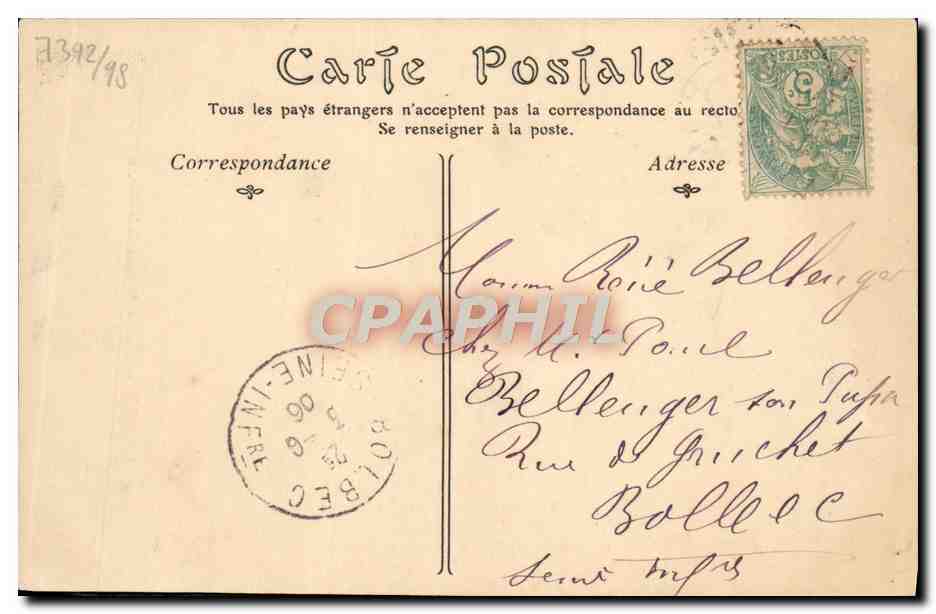 7392/98
Carte Postale
Tous les pays étrangers n'acceptent pas la correspondance au recto
Se renseigner à la poste.
Correspondance
Adresse
POSTES
5
Réné Bellenger
CPAPHIL
chez M. Paul
Bellenger son Papa
Rue de Gruchet
Bolbec
Seine Infre
BOLBEC
SEINE-INFRE
06